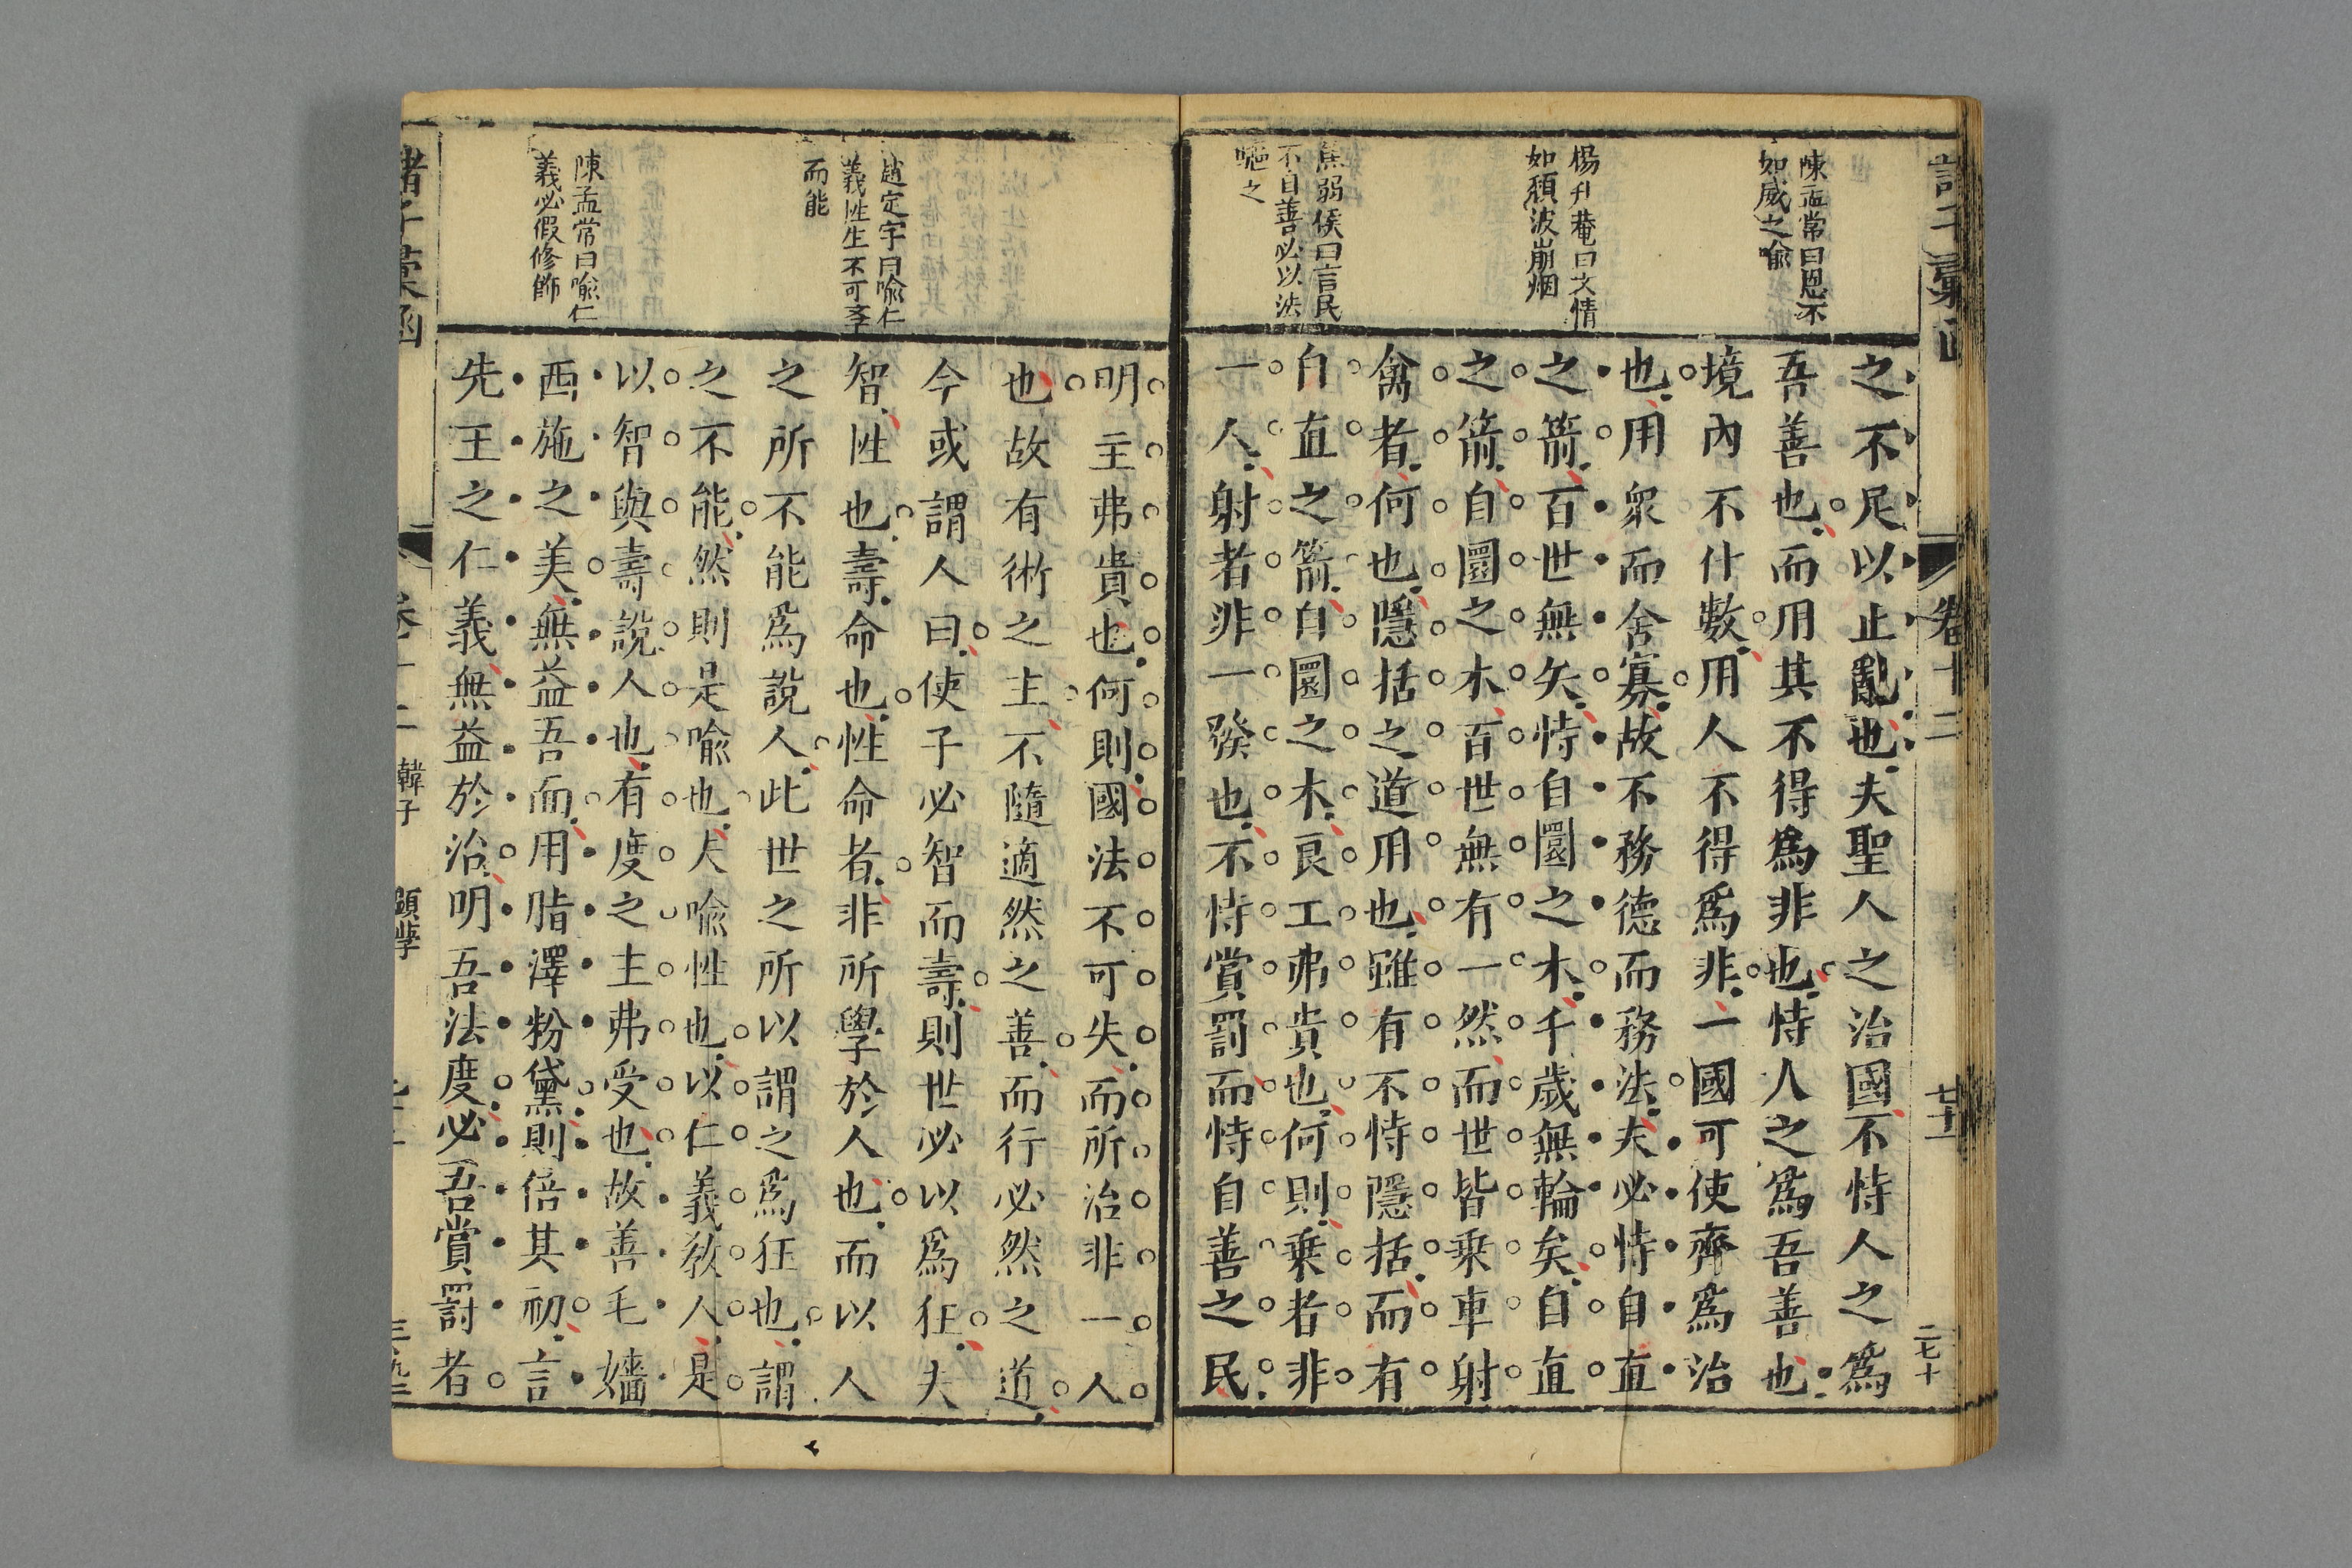 陳孟常曰恩不
如威之喻
楊升菴曰文情
如頹波崩烟
焦弱侯曰言民
不自善必以法
驅之
卷十二
七十一
之不足以止亂也夫聖人之治國不恃人之爲
吾善也而用其不得爲非也恃人之爲吾善也
境內不什數用人不得爲非一國可使齊爲治
也用衆而舍寡故不務德而務法夫必恃自直
之箭百世無矢恃自圜之木千歲無輪矣自直
之箭自圜之木百世無有一然而世皆乘車射
禽者何也隱括之道用也雖有不恃隱括而有
自直之箭自圜之木良工弗貴也何則乘者非
一人射者非一發也不恃賞罰而恃自善之民
趙定宇曰喩仁
義性生不可學
而能
陳孟常曰喩仁
義必假修飾
明主弗貴也何則國法不可失而所治非一人
也故有術之主不隨適然之善而行必然之道
今或謂人曰使子必智而壽則世必以爲狂夫
智性也壽命也性命者非所學於人也而以人
之所不能爲說人此世之所以謂之爲狂也謂
之不能然則是喩也夫喩性也以仁義敎人是
以智與壽說人也有度之主弗受也故善毛嬙
西施之美無益吾而用脂澤粉黛則倍其初言
先王之仁義無益於治明吾法度必吾賞罰者
諸子彙函
韓子
顯學